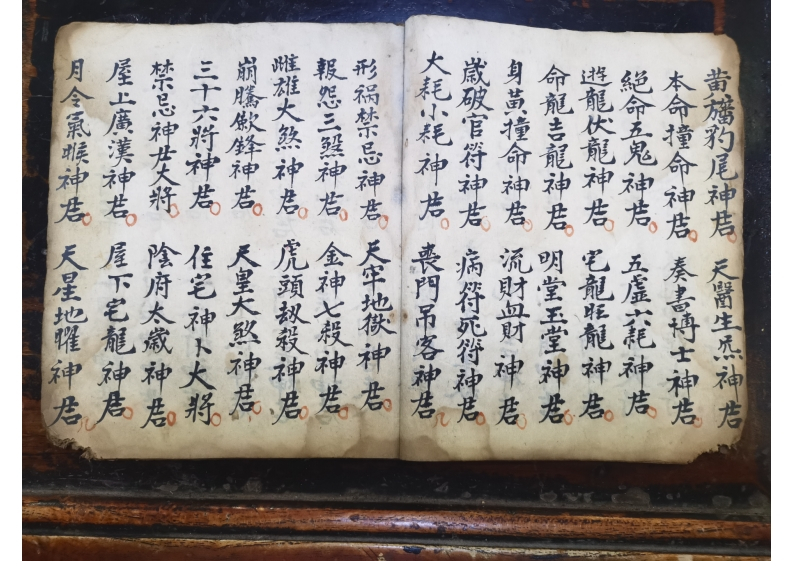 黄旛豹尾神君 天醫生炁神君
本命撞命神君 奏書博士神君
絕命五鬼神君 五虛六耗神君
遊龍伏龍神君 宅龍旺龍神君
命龍吉龍神君 明堂玉堂神君
身黃撞命神君 流財血財神君
歲破官符神君 病符死符神君
大耗小耗神君 喪門吊客神君
形祸禁忌神君 天牢地獄神君
報怨三煞神君 金神七殺神君
雌雄大煞神君 虎頭劫殺神君
崩騰鋒神君 天皇大煞神君
三十六將神君 住宅神卜大將
禁忌神廿大將 陰府太歲神君
屋上廣漢神君 屋下宅龍神君
月令氣候神君 天星地曜神君